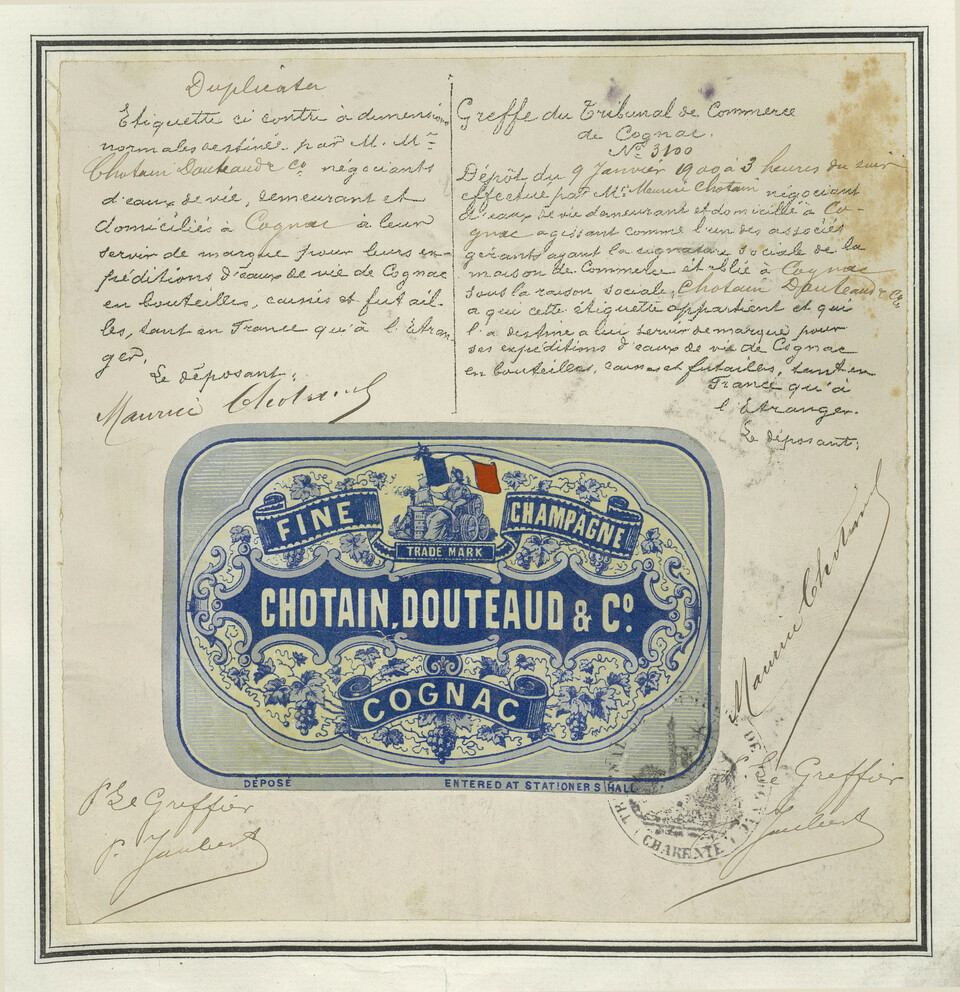 Duplicata
Etiquette ci contre à dimensions
normales destinée par M. Mrs
Chotain Douteaud & Co négociants
d'eaux de vie, demeurant et
domiciliés à Cognac à leur
servir de marque pour leurs ex-
péditions d'eaux de vie de Cognac
en bouteilles, caisses et futail-
les, tant en France qu'à l'Etran-
ger.
Le déposant,
Maurice Chotain
Greffe du Tribunal de Commerce
de Cognac.
No 3100
Dépôt du 9 Janvier 1900 à 3 heures du soir
effectué par Mr Maurice Chotain négociant
d'eaux de vie demeurant et domicilié à Co-
gnac agissant comme l'un des associés
gérants ayant la signature sociale de la
maison de Commerce établie à Cognac
sous la raison sociale, Chotain Douteaud & Co
a qui cette étiquette appartient et qui
l'a destine a lui servir de marque pour
ses expéditions d'eaux de vie de Cognac
en bouteilles, caisses et futailles, tant en
France qu'à
l'Etranger.
Le déposant,
Maurice Chotain
FINE CHAMPAGNE
TRADE MARK
CHOTAIN, DOUTEAUD & Co.
COGNAC
DÉPOSÉ ENTERED AT STATIONERS HALL
p. Le Greffier
p. Jaubert
p. Le Greffier
Jaubert
DE COGNAC
CHARENTE